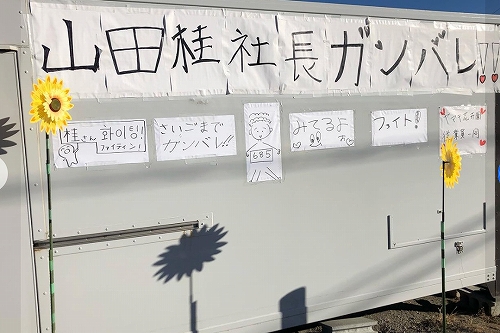 山田桂社長ガンバレ!!
桂さん 화이팅!
ファイティン!
さいごまで
ガンバレ!!
685
みてるよ
ファイト!
従業員一同